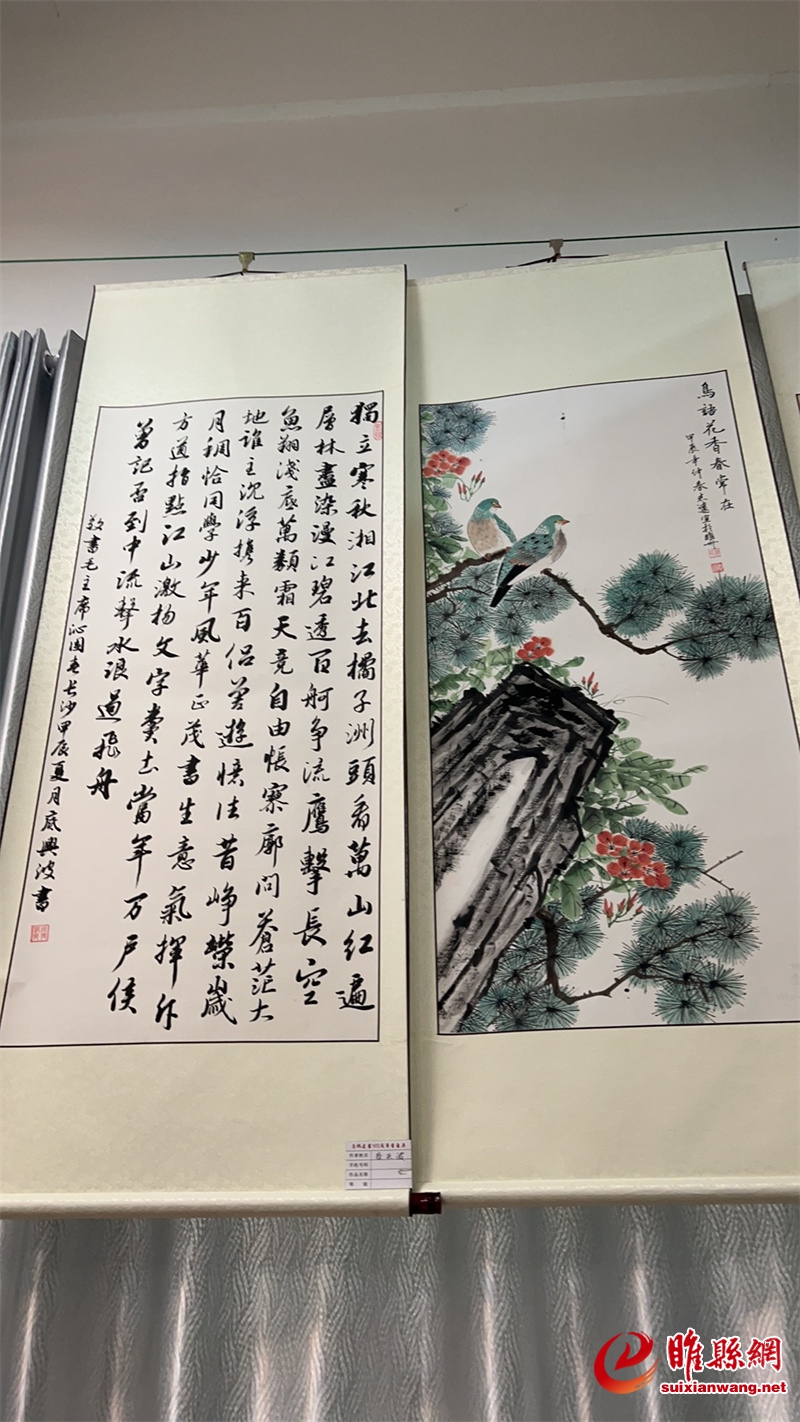 獨立寒秋湘江北去橘子洲頭看萬山紅遍
層林盡染漫江碧透百舸争流鷹擊長空
魚翔淺底萬類霜天竞自由悵寥廓问蒼茫大
地誰主沉浮携来百侣曾遊憶往昔峥嵘歲
月稠恰同學少年風華正茂書生意氣揮斥
方遒指點江山激扬文字糞土當年万户侯
曾記否到中流擊水浪遏飛舟
敬書毛主席沁園春長沙甲辰夏月底興波書
鳥語花香春常在
甲辰年仲春
作者姓名
作品名称
睢縣網
suixianwang.net